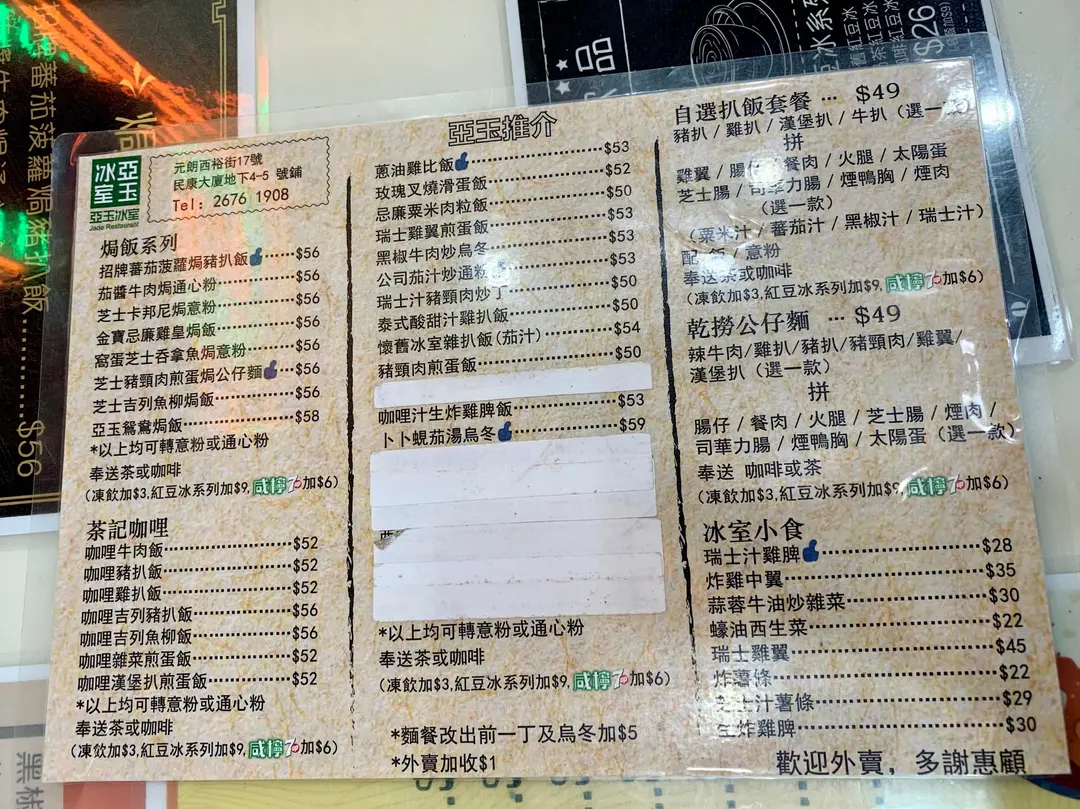 亞玉冰室
亞玉冰室
Jade Restaurant
元朗西裕街17號
民康大廈地下4-5 號鋪
Tel: 2676 1908
焗飯系列
招牌蕃茄菠蘿焗豬扒飯 $56
茄醬牛肉焗通心粉 $56
芝士卡邦尼焗意粉 $56
金寶忌廉雞皇焗飯 $56
窩蛋芝士吞拿魚焗意粉 $56
芝士豬頸肉煎蛋焗公仔麵 $56
芝士吉列魚柳焗飯 $56
亞玉鴛鴦焗飯 $58
*以上均可轉意粉或通心粉
奉送茶或咖啡
(凍飲加$3,紅豆冰系列加$9,咸檸7加$6)
茶記咖哩
咖哩牛肉飯 $52
咖哩豬扒飯 $52
咖哩雞扒飯 $52
咖哩吉列豬扒飯 $56
咖哩吉列魚柳飯 $56
咖哩雜菜煎蛋飯 $52
咖哩漢堡扒煎蛋飯 $52
*以上均可轉意粉或通心粉
奉送茶或咖啡
(凍飲加$3,紅豆冰系列加$9,咸檸7加$6)
亞玉推介
蔥油雞比飯 $53
玫瑰叉燒滑蛋飯 $52
忌廉粟米肉粒飯 $50
瑞士雞翼煎蛋飯 $53
黑椒牛肉炒烏冬 $53
公司茄汁炒通粉 $53
瑞士汁豬頸肉炒丁 $50
泰式酸甜汁雞扒飯 $50
懷舊冰室雜扒飯(茄汁) $54
豬頸肉煎蛋飯 $50
咖哩汁生炸雞脾飯 $53
卜卜蜆茄湯烏冬 $59
*以上均可轉意粉或通心粉
奉送茶或咖啡
(凍飲加$3,紅豆冰系列加$9,咸檸7加$6)
*麵餐改出前一丁及烏冬加$5
*外賣加收$1
自選扒飯套餐 … $49
豬扒 / 雞扒 / 漢堡扒 / 牛扒 (選一款)
拼
雞翼 / 腸仔 / 餐肉 / 火腿 / 太陽蛋
芝士腸 / 司華力腸 / 煙鴨胸 / 煙肉
(選一款)
(粟米汁 / 蕃茄汁 / 黑椒汁 / 瑞士汁)
配 飯 / 意粉
奉送茶或咖啡
(凍飲加$3,紅豆冰系列加$9,咸檸7加$6)
乾撈公仔麵 … $49
辣牛肉/雞扒/豬扒/豬頸肉/雞翼/
漢堡扒 (選一款)
拼
腸仔 / 餐肉 / 火腿 / 芝士腸 / 煙肉 /
司華力腸 / 煙鴨胸 / 太陽蛋 (選一款)
奉送 咖啡或茶
(凍飲加$3,紅豆冰系列加$9,咸檸7加$6)
冰室小食
瑞士汁雞脾 $28
炸雞中翼 $35
蒜蓉牛油炒雜菜 $30
蠔油西生菜 $22
瑞士雞翼 $45
炸薯條 $22
芝士汁薯條 $29
生炸雞脾 $30
歡迎外賣, 多謝惠顧
招牌蕃茄菠蘿焗豬扒飯 $56
$26
黑椒